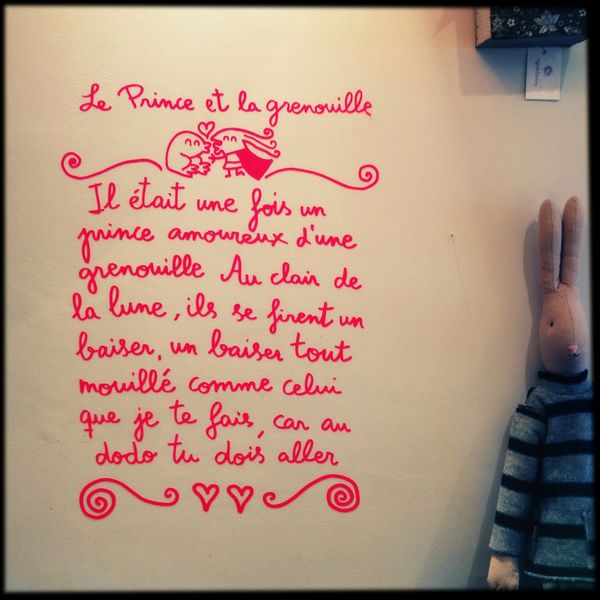 Le Prince et la grenouille
Il était une fois un
prince amoureux d'une
grenouille Au clair de
la lune, ils se firent un
baiser, un baiser tout
mouillé comme celui
que je te fais, car au
dodo tu dois aller